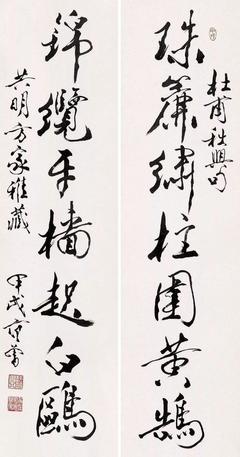 杜甫秋興句
珠簾繡柱圍黃鵠
錦纜牙檣起白鷗
明方家雅藏
甲戌